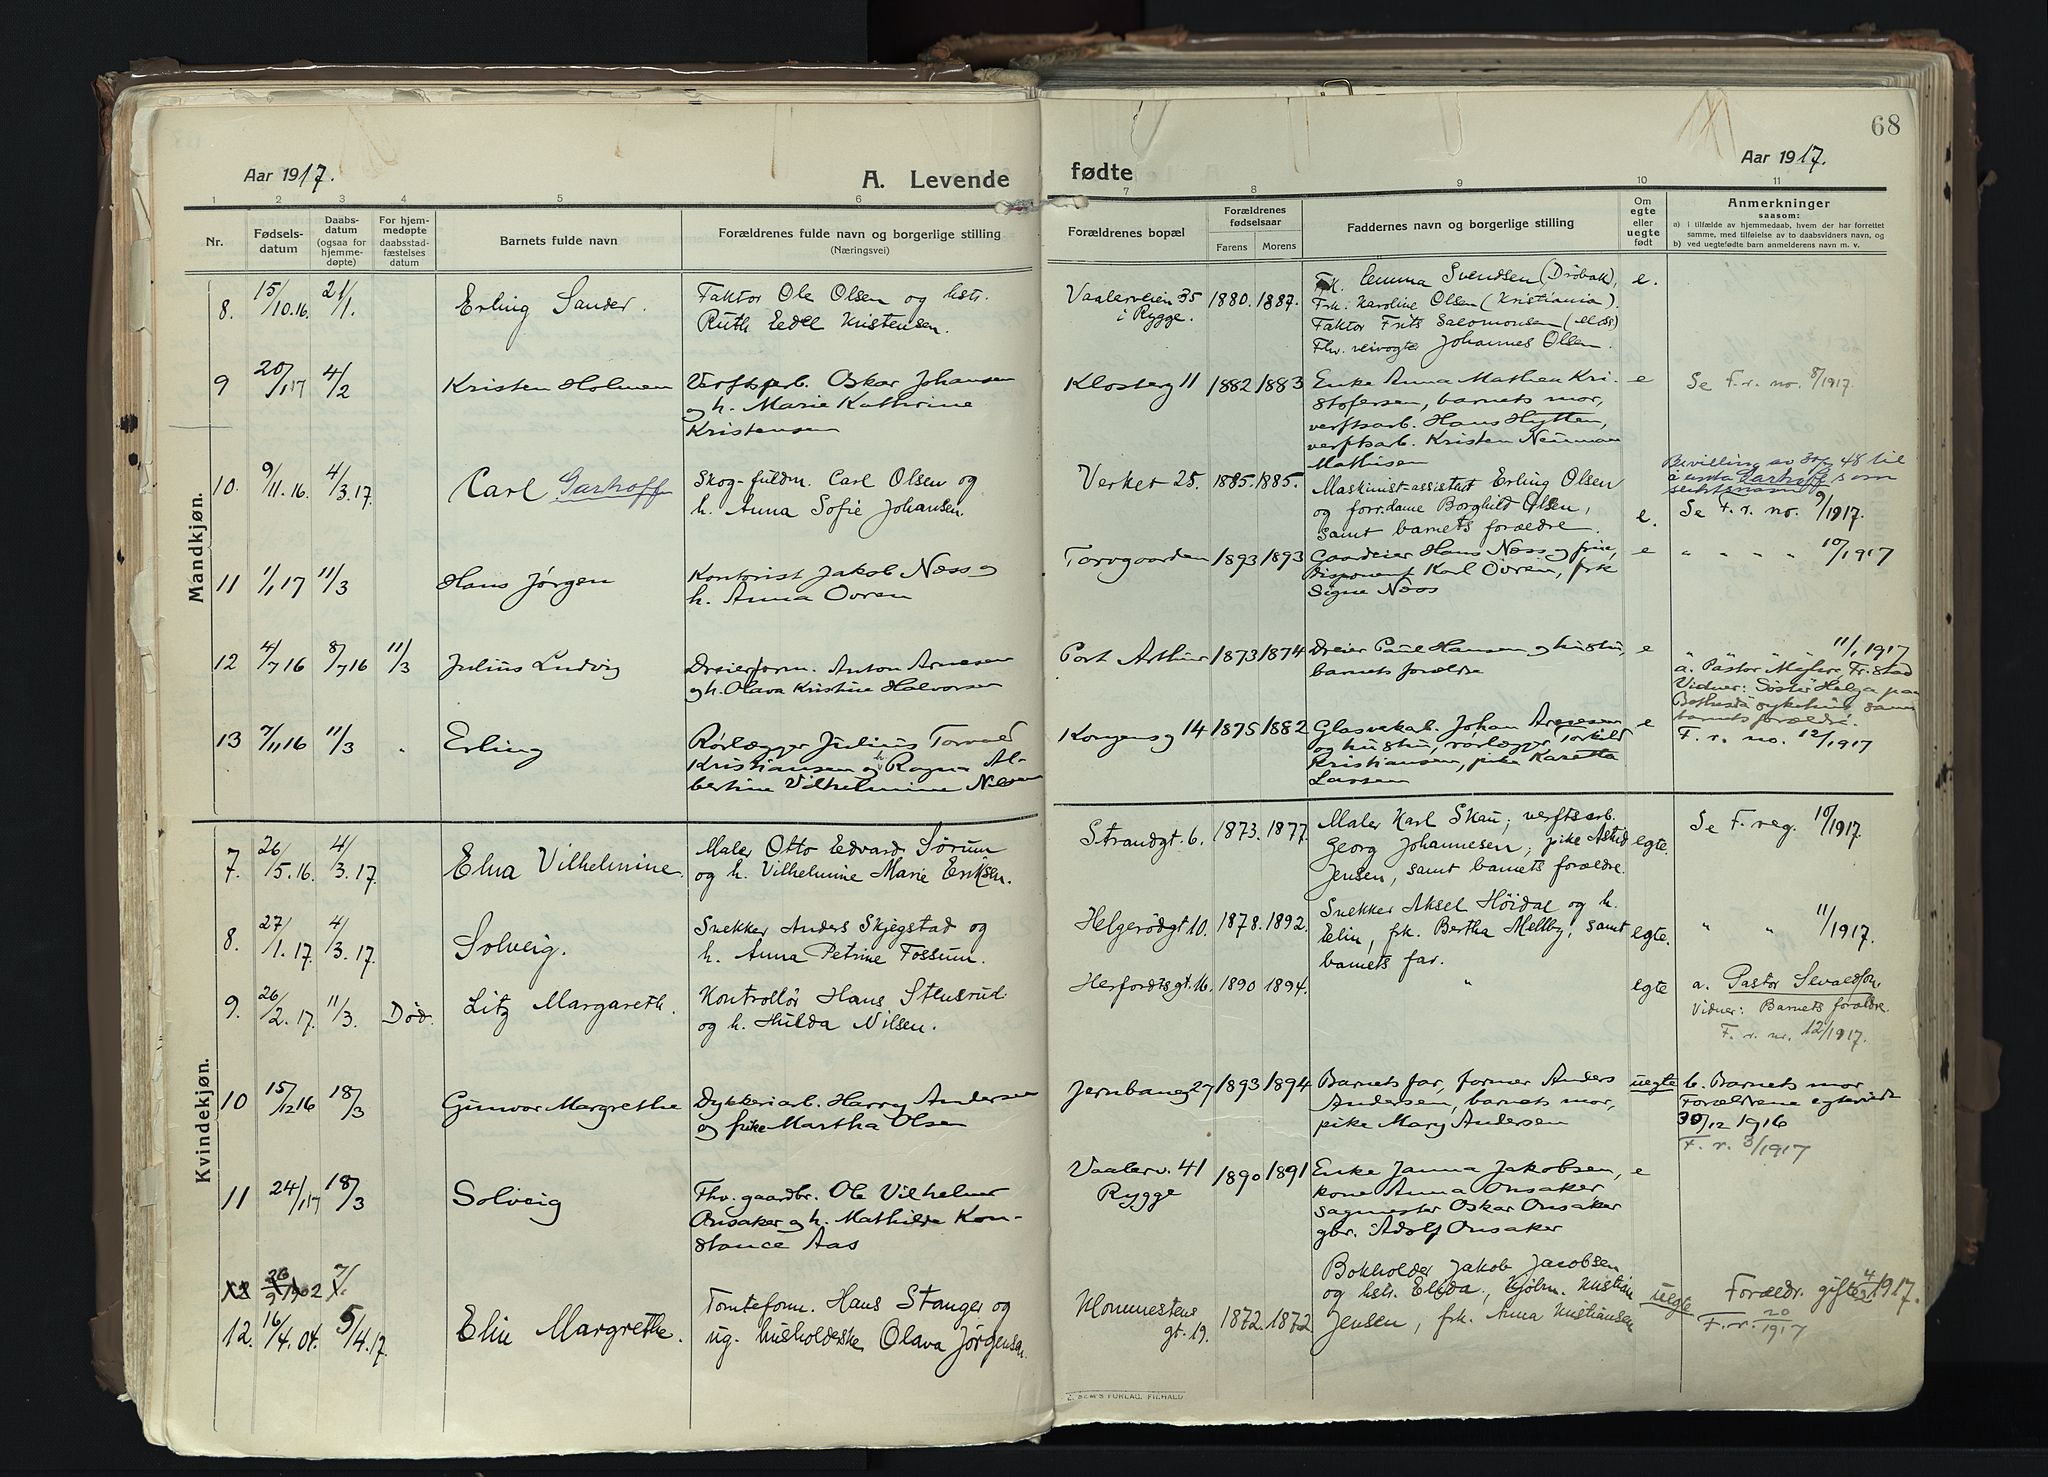 Aar 1917.
A. Levende
1 2 3 4 5 6
Nr.
Fødsels-
datum
Daabs-
datum
(ogsaa for
hjemme-
døpte)
For hjem-
medøpte
daabsstad-
fæstelses
datum
Barnets fulde navn
Forældrenes fulde navn og borgerlige stilling
(Næringsvei)
Mandkjøn.
8. 15/10.16. 21/1. Erling Sander. Faktor Ole Olsen og hstr.
Ruth Edel Kristensen.
9 20/1 17 4/2 Kristen Holmen Verftsarb. Oskar Johansen
og h. Marie Kathrine
Kristensen
10. 9/11.16. 4/3.17. Carl Garhoff Skog-fuldm. Carl Olsen og
h. Anna Sofie Johansen.
11 1/1 17 11/3 Hans Jørgen Kontorist Jakob Næss og
h. Anna Ovren
12 4/7 16 8/7 16 11/3 Julius Ludvig Dreierform. Anton Arnesen
og h. Olava Kristine Halvorsen
13 7/11 16 11/3 Erling Rørlægger Julius Torvald
Kristiansen og h. Ragna Al-
bertine Vilhelmine Nilsen
Kvindekjøn.
7. 26/5.16. 4/3.17. Elna Vilhelmine. Maler Otto Edvard Sørum
og h. Vilhelmine Marie Eriksen.
8. 27/1.17. 4/3.17. Solveig. Snekker Anders Skjegstad og
h. Anna Petrine Fossum.
9. 26/2.17. 11/3. Død. Litz Margareth. Kontrollør Hans Stensrud
og h. Hulda Nilsen.
10 15/12 16 18/3 Gunvor Margrethe Dykkeriarb. Harry Andersen
og pike Martha Olsen
11 24/1 17 18/3 Solveig Fhv. gaardbr. Ole Vilhelm
Onsaker og h. Mathilde Kon-
stance Aas
12. 16/4.04. 5/4.17. Elin Margrethe. Tomteform. Hans Stanger og
ug. husholderske Olava Jørgensen.
68
Aar 1917.
fødte
7 8 9 10 11
Forældrenes bopæl
Forældrenes
fødselsaar
Farens Morens
Faddernes navn og borgerlige stilling
Om
egte
eller
uegte
født
Anmerkninger
saasom:
a) i tilfælde av hjemmedaab, hvem der har forrettet
samme, med tilføielse av to daabsvidners navn, og
b) ved uegtefødte barn anmelderens navn m. v.
Vaalerveien 35
i Rygge. 1880. 1887. Frk. Emma Svendsen (Drøbak), e.
Frk. Karoline Olsen (Kristiania).
Faktor Frits Salomonsen (Moss)
Fhv. veivogter Johannes Olsen.
Klosterg 11 1882 1883 Enke Anna Mathea Kri- e Se F. r. no. 8/1917.
stofersen, barnets mor,
verftsarb. Hans Hytten,
verftsarb. Kristen Neuman
Mathisen
Verket 25. 1885. 1885. Maskinist-assistent Erling Olsen
og forr.dame Borghild Olsen,
samt barnets forældre. e.
Bevilling av 30/7 48 til
å anta Garhoff som
slektsnavn
Se F. r. no. 9/1917.
Torvgaarden 1893 1893 Gaardeier Hans Næss og frue, e " " " " 10/1917
disponent Karl Ovren, frk
Signe Næss
Port Arthur 1873 1874 Dreier Paul Hansen og hustru, e " 11/1917
barnets forældre
a. Pastor Myhre, Fr.stad
Vidner: Søster Helga paa
Bethesda sykehus samt
barnets forældre.
Kongens g 14 1875 1882 Glasverkarb. Johan Arnesen e F. r. no. 12/1917
og hustru, rørlægger Torkild
Kristiansen, pike Karetta
Larsen
Strandgt. 6. 1873. 1877. Maler Karl Skau; verftsarb. Se F. reg. 10/1917.
Georg Johannesen; pike Astrid egte.
Jensen, samt barnets forældre.
Helgerødgt 10. 1878. 1892. Snekker Aksel Høidal og h. " " 11/1917.
Elin, frk. Bertha Mellby, samt egte.
barnets far.
Herfordtsgt. 16. 1890 1894. " egte a. Pastor Sevaldson.
Vidner: Barnets forældre.
F. r. nr. 12/1917.
Jernbaneg 27 1893 1894 Barnets far, former Anders uegte b. Barnets mor
Andersen, barnets mor, Forældrene egteviedt
pike Mary Andersen 30/12 1916
F. r. 3/1917
Vaalerv. 41
Rygge 1890 1891 Enke Janna Jakobsen, e
kone Anna Onsaker,
sagmester Oskar Onsaker
gbr. Adolf Onsaker
Klommestens
gt. 19. 1872. 1872 Bokholder Jakob Jacobsen
og hstr. Elida, Kjøbm. Kristian uegte Forældr. gifte 4/2 1917.
Jensen, frk. Anna Kristiansen F. r. 20/1917
SEM'S FORLAG, F.HALD